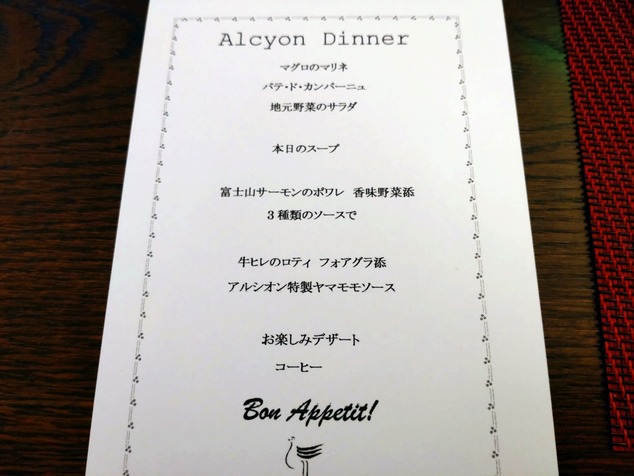 Alcyon Dinner
マグロのマリネ
パテ・ド・カンパーニュ
地元野菜のサラダ
本日のスープ
富士山サーモンのポワレ 香味野菜添
3種類のソースで
牛ヒレのロティ フォアグラ添
アルシオン特製ヤマモモソース
お楽しみデザート
コーヒー
Bon Appetit!